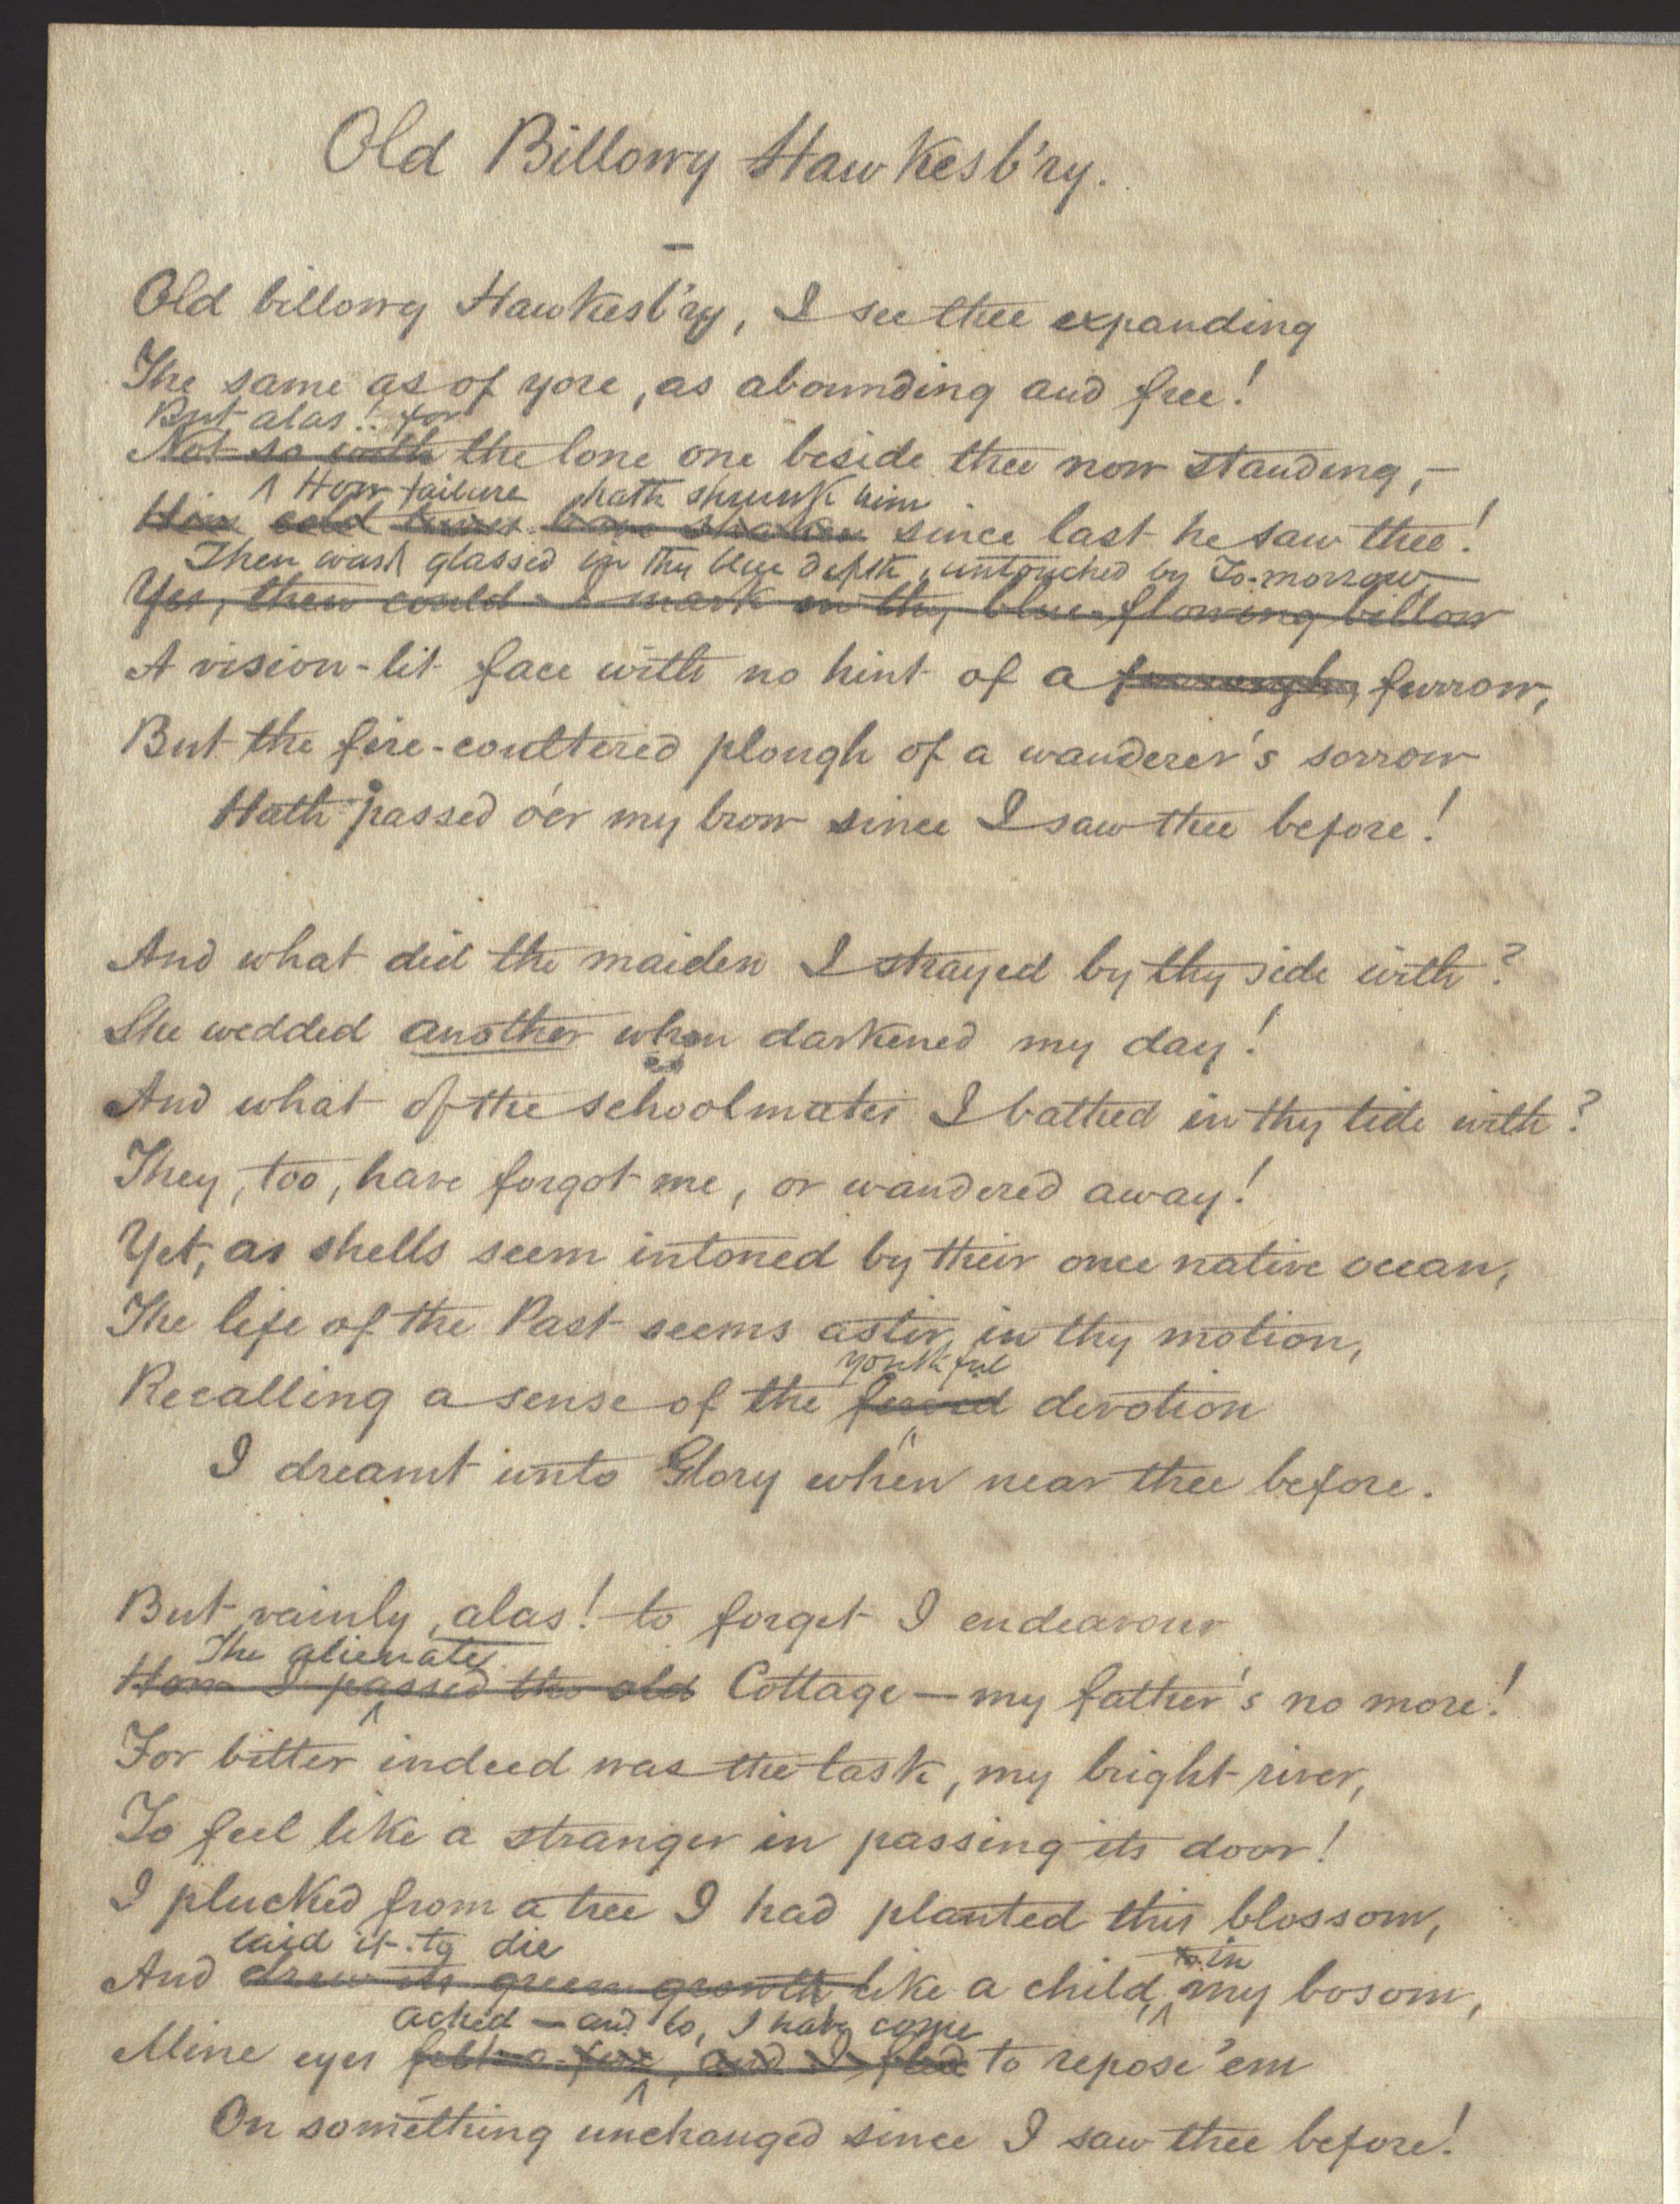 Old Billowy Hawkesb'ry.
Old billowy Hawkesb'ry, I see thee expanding
The same as of yore, as abounding and free!
But alas! for
Not so with the lone one beside thee now standing,—
How failure hath shrunk him
How cold since last he saw thee!
Then was glassed in thy blue depth, untouched by To-morrow,
Yes, then could I mark on thy blue-flowing billow
A vision-lit face with no hint of a furrow,
But the fire-coultered plough of a wanderer's sorrow
Hath passed o'er my brow since I saw thee before!
And what did the maiden I strayed by thy side with?
She wedded another when darkened my day!
And what of the schoolmates I bathed in thy tide with?
They, too, have forgot me, or wandered away!
Yet, as shells seem intoned by their once native ocean,
The life of the Past seems astir in thy motion,
youthful
Recalling a sense of the fervid devotion
I dreamt unto Glory when near thee before.
But vainly, alas! to forget I endeavour
The alienate
How I passed the old Cottage — my father's no more!
For bitter indeed was the task, my bright river,
To feel like a stranger in passing its door!
I plucked from a tree I had planted this blossom,
laid it to die in
And drew its green growth like a child, my bosom,
ached — and lo, I have come
Mine eyes felt a fire, and I fled to repose 'em
On something unchanged since I saw thee before!